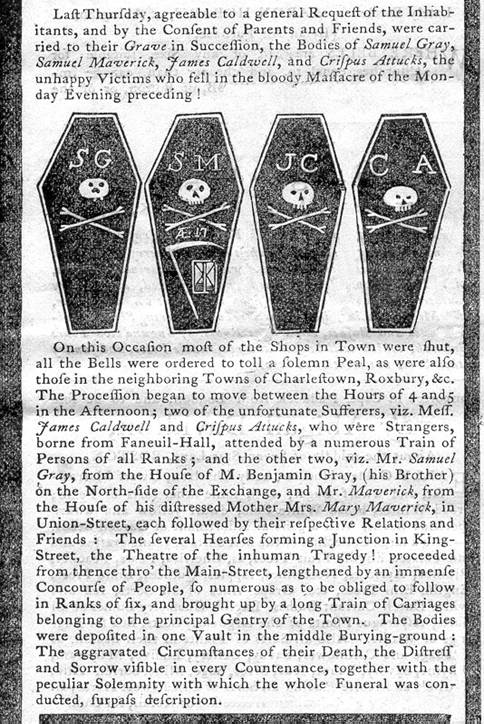 Laſt Thurſday, agreeable to a general Requeſt of the Inhab-
itants, and by the Conſent of Parents and Friends, were car-
ried to their Grave in Succeſſion, the Bodies of Samuel Gray,
Samuel Maverick, James Caldwell, and Criſpus Attucks, the
unhappy Victims who fell in the bloody Maſſacre of the Mon-
day Evening preceding !
SG
SM
JC
CA
Æ.17
On this Occaſion moſt of the Shops in Town were ſhut,
all the Bells were ordered to toll a ſolemn Peal, as were alſo
thoſe in the neighboring Towns of Charleſtown, Roxbury, &c.
The Proceſſion began to move between the Hours of 4 and 5
in the Afternoon ; two of the unfortunate Sufferers, viz. Meſſ.
James Caldwell and Criſpus Attucks, who were Strangers,
borne from Faneuil-Hall, attended by a numerous Train of
Perſons of all Ranks ; and the other two, viz. Mr. Samuel
Gray, from the Houſe of M. Benjamin Gray, (his Brother)
on the North-ſide of the Exchange, and Mr. Maverick, from
the Houſe of his diſtreſſed Mother Mrs. Mary Maverick, in
Union-Street, each followed by their reſpective Relations and
Friends : The ſeveral Hearſes forming a Junction in King-
Street, the Theatre of the inhuman Tragedy ! proceeded
from thence thro' the Main-Street, lengthened by an immenſe
Concourſe of People, ſo numerous as to be obliged to follow
in Ranks of ſix, and brought up by a long Train of Carriages
belonging to the principal Gentry of the Town. The Bodies
were depoſited in one Vault in the middle Burying-ground :
The aggravated Circumſtances of their Death, the Diſtreſſ
and Sorrow viſible in every Countenance, together with the
peculiar Solemnity with which the whole Funeral was con-
ducted, ſurpaſs deſcription.